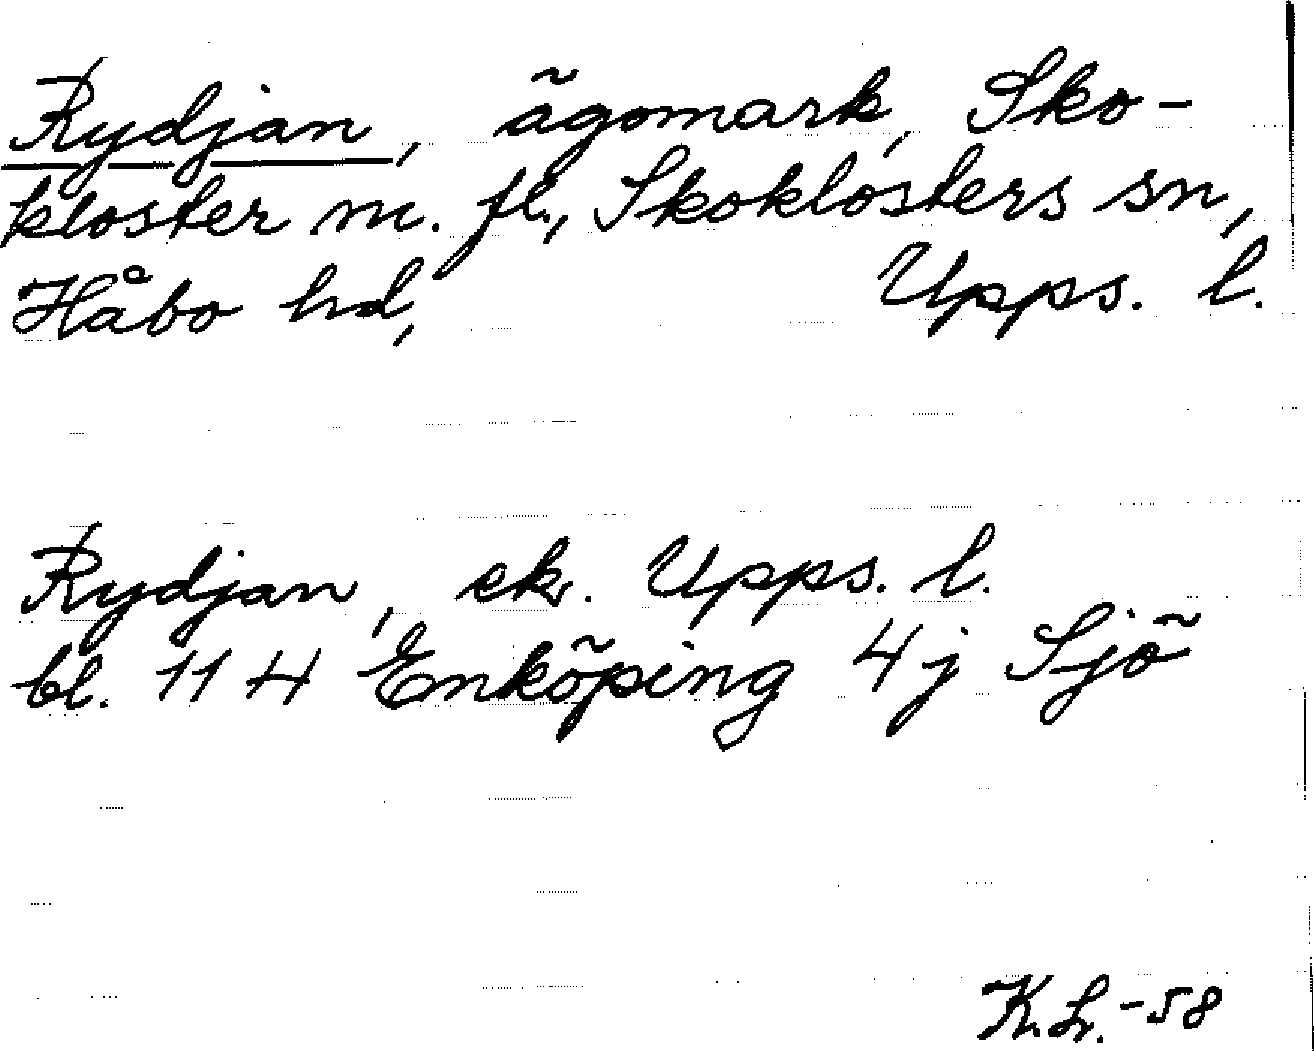 Rydjan, ägomark, Sko-
kloster m. fl., Skoklosters sn,
Håbo hd, Upps. l.
Rydjan, ek. Upps. l.
bl. 11 H Enköping 4j Sjö
K. L. -58